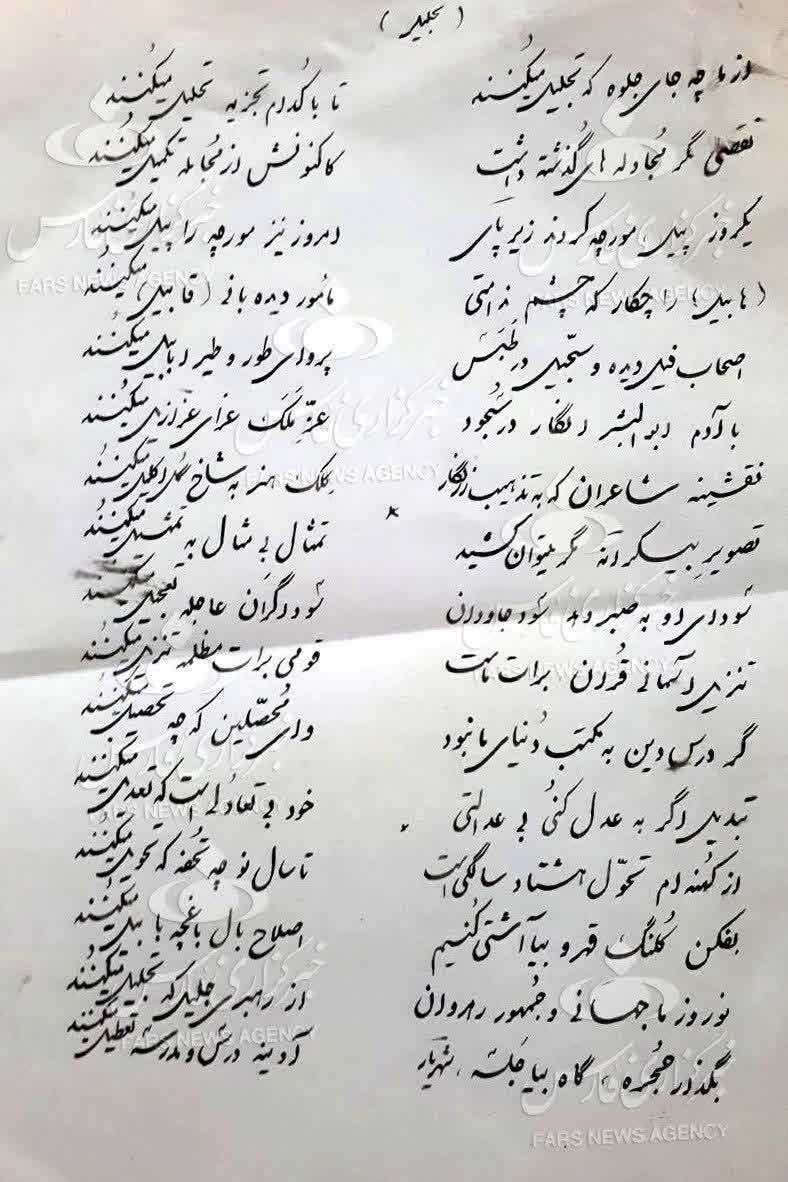 (تجلیل)
از ما چه جای جلوه که تجلیل میکنند تا با کدام تجزیه تحلیل میکنند
نقصی مگر مجادله های گذشته داشت کاکنونش از مجامله تکمیل میکنند
یکروز پیل، مورچه کردند زیر پای امروز نیز مورچه را پیل میکنند
(هابیل) را چکار که چشم ندامتی مأمور دیده بانی (قابیل) میکنند
اصحاب فیل دیده و سجیل در طبس پروای طور و طیر ابابیل میکنند
با آدم ابوالبشر انکار در سجود عز ملک عزای عزازیل میکنند
نقشینه شاعران که به تذهیب زرنگار کلک هنر به شاخ گل اکلیل میکنند
تصویر بیکرانه مگر میتوان کشید تمثال بی مثال به تمثیل میکنند
سودای او به صبر دهد سود جاودان سوداگران عاجله تعجیل میکنند
تنزیل آسمانی قرآن برات ماست قومی برات مظلمه تنزیل میکنند
گر درس دین به مکتب دنیای ما نبود وای محصلین که چه تحصیل میکنند
تبدیل اگر به عدل کنی بی عدالتی خود بی تعادلی است که تعدیل میکنند
از کهنه ام تحول هشتاد سالگی است تا سال نو چه تحفه که تحویل میکنند
بفکن کلنگ قهر و بیا آشتی کنیم اصلاح بال باغچه با بیل میکنند
نوروز ما جهانی و جمهور رهروان از رهبری جلیل که تجلیل میکنند
بگذار حجره، گاه بیا جلسه، شهریار آدینه درس و مدرسه تعطیل میکنند
خبرگزاری فارس
FARS NEWS AGENCY